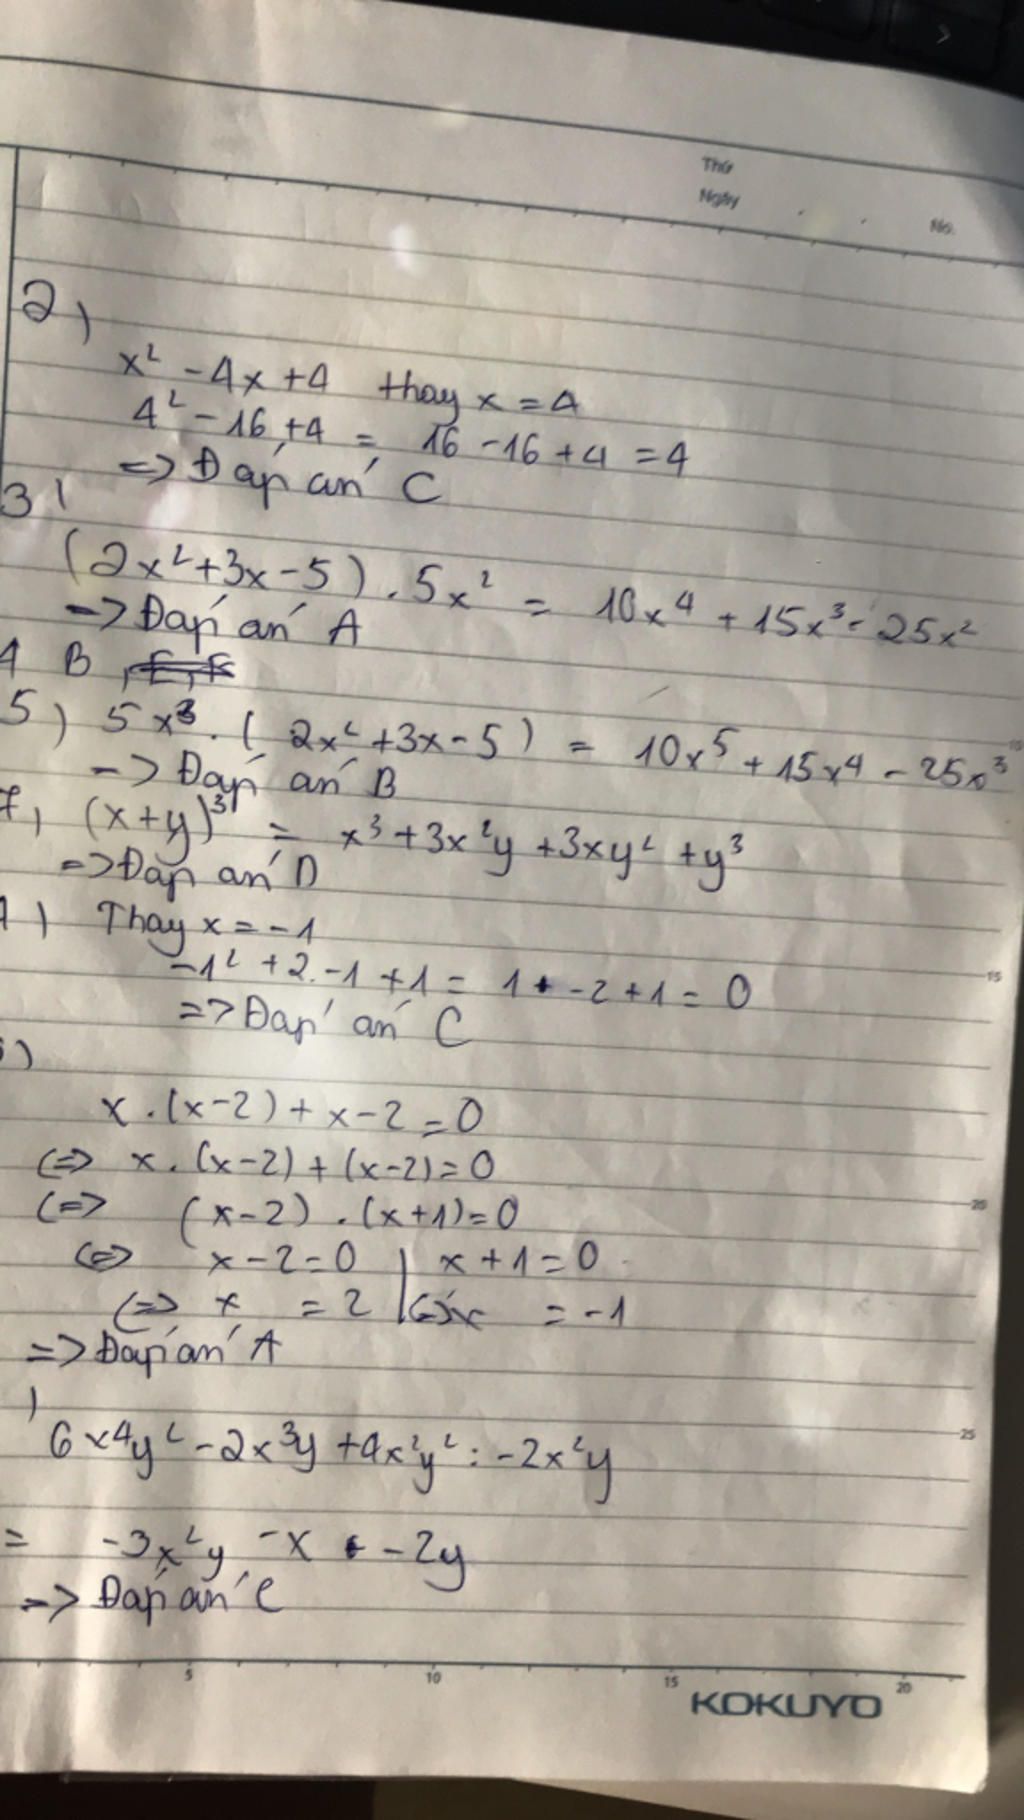 Thứ
Ngày . . No.
2)
x² - 4x + 4 thay x = 4
4² - 16 + 4 = 16 - 16 + 4 = 4
=> Đáp án C
3)
(2x² + 3x - 5) . 5x² = 10x⁴ + 15x³ - 25x²
-> Đáp án A
4 B
5) 5x³ . ( 2x² + 3x - 5 ) = 10x⁵ + 15x⁴ - 25x³
-> Đáp án B
7) (x+y)³ = x³ + 3x²y + 3xy² + y³
=> Đáp án D
1) Thay x = -1
-1² + 2.-1 + 1 = 1 + -2 + 1 = 0
=> Đáp án C
)
x . (x-2) + x - 2 = 0
(=> x . (x-2) + (x-2) = 0
(=> (x-2) . (x+1) = 0
<=> x - 2 = 0 | x + 1 = 0
(=> x = 2 | <=> x = -1
=> Đáp án A
)
6x⁴y² - 2x³y + 4x²y² : -2x²y
= -3x²y - x + -2y
-> Đáp án C
5 10 15 20
KOKUYO